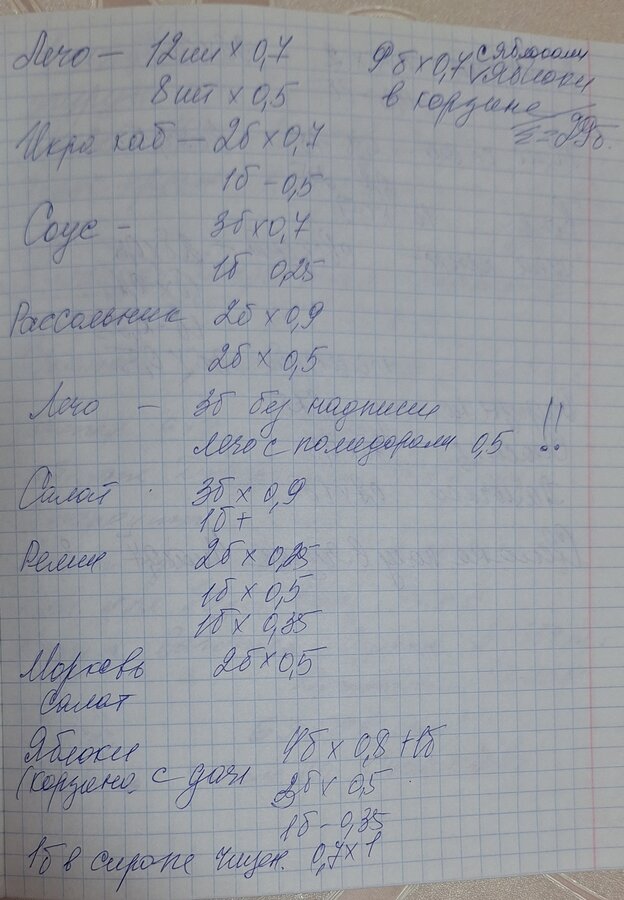 Лечо — 12шт х 0,7
8шт х 0,5
9б х 0,7 с яблоками
Яблоки
в корзине
Σ=29б.
Икра каб — 2б х 0,7
1б - 0,5
Соус - 3б х 0,7
1б 0,25
Рассольник 2б х 0,9
2б х 0,5
Лечо — 3б без надписи
лечо с помидорами 0,5 !!
Салат. 3б х 0,9
1б +
2б х 0,25
1б х 0,5
1б х 0,35
Морковь 2б х 0,5
салат
Яблоки 4б х 0,8 + 1б
(корзина с дачи 2б х 0,5
1б - 0,35
1б в сиропе 0,7 х 1